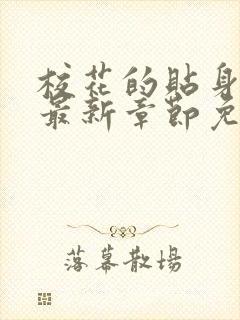 校花的貼身
最新章節免
落幕散場